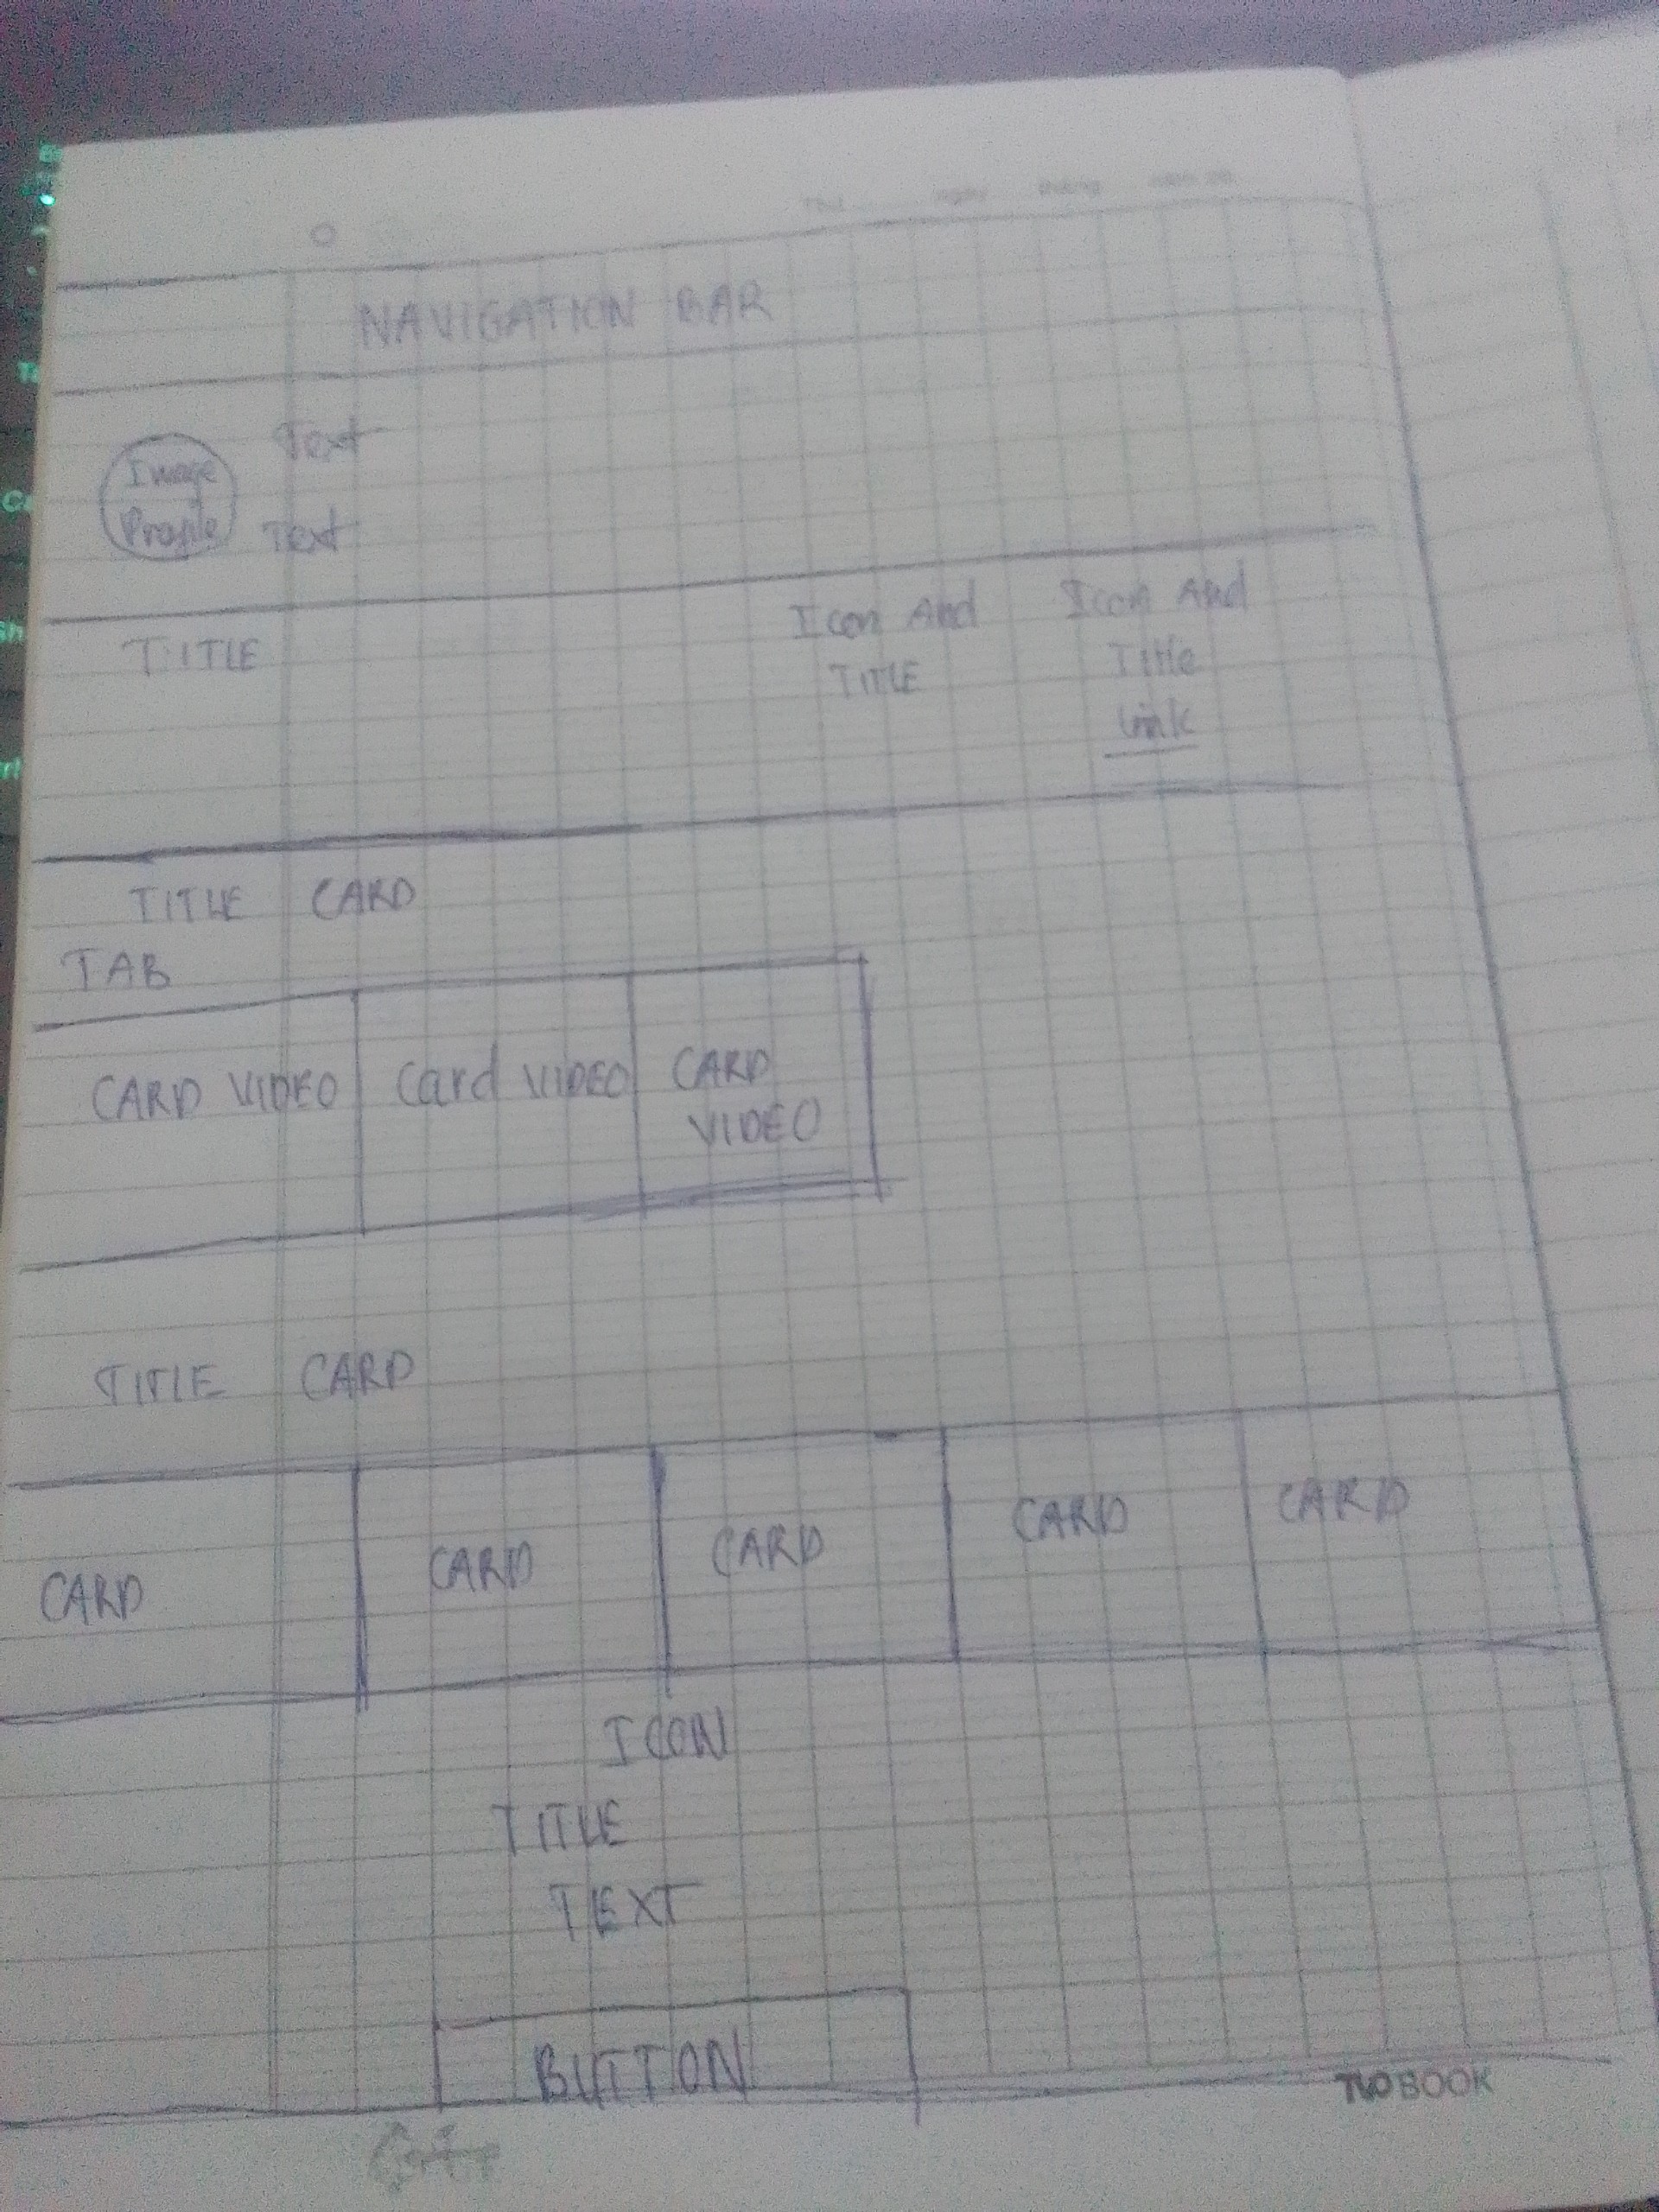 NAVIGATION BAR
Image
Profile
Text
Text
TITLE
Icon And
TITLE
Icon And
Title
Link
TITLE CARD
TAB
CARD VIDEO
Card VIDEO
CARD
VIDEO
TITLE CARD
CARD
CARD
CARD
CARD
CARD
ICON
TITLE
TEXT
BUTTON
BOOK